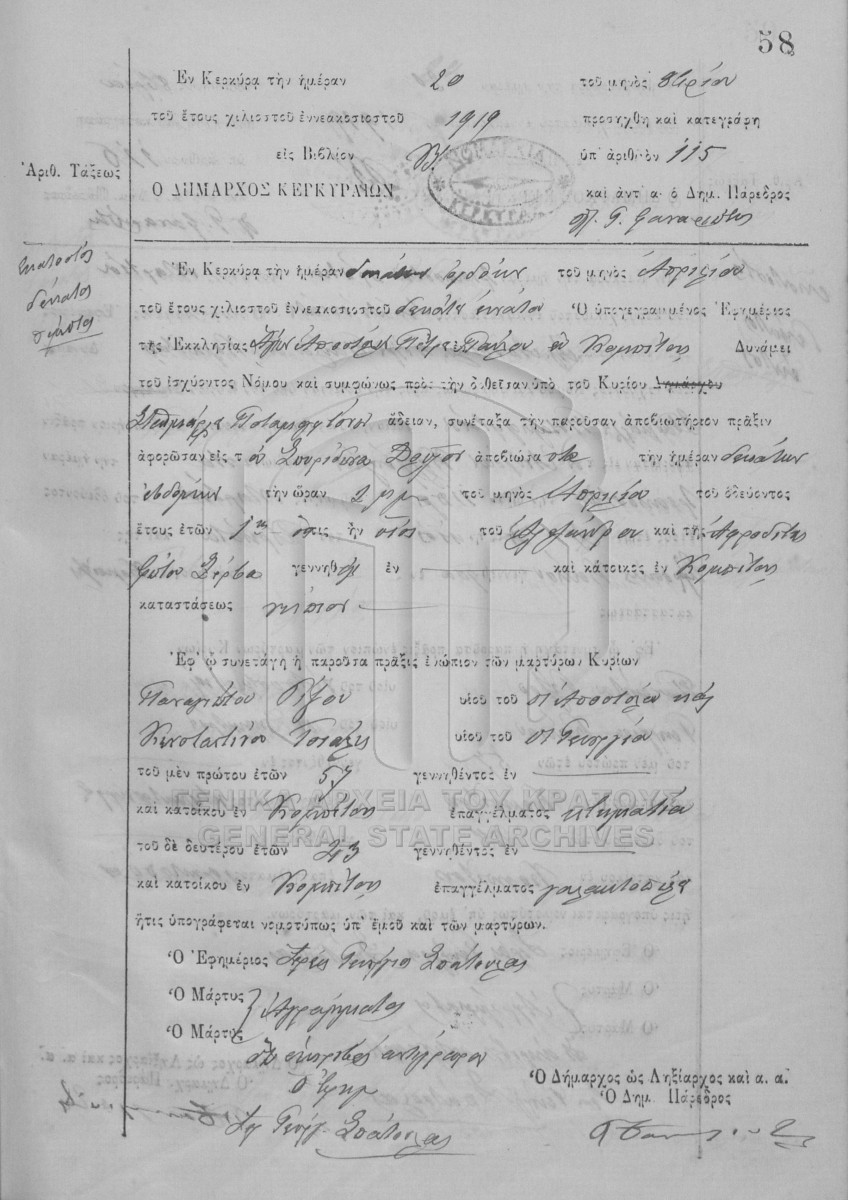 58
Ἐν Κερκύρᾳ τὴν ἡμέραν 20 τοῦ μηνὸς
τοῦ ἔτους χιλιοστοῦ ἐννεακοσιοστοῦ 1919 προσήχθη καὶ κατεγράφη
εἰς Βιβλίον ὑπ' ἀριθμὸν 115
Ἀριθ. Τάξεως
Ο ΔΗΜΑΡΧΟΣ ΚΕΡΚΥΡΑΙΩΝ καὶ ἀντ' α. ὁ Δημ. Πάρεδρος
ἑκατοστὸς
δέκατος
πέμπτος
Ἐν Κερκύρᾳ τὴν ἡμέραν δεκάτην ὀγδόην τοῦ μηνὸς Ἀπριλίου
τοῦ ἔτους χιλιοστοῦ ἐννεακοσιοστοῦ δεκάτου ἐνάτου Ὁ ὑπογεγραμμένος Ἐφημέριος
τῆς Ἐκκλησίας Ἁγίων Ἀποστόλων Πέτρου Παύλου ἐν Κομπίτσι Δυνάμει
τοῦ ἰσχύοντος Νόμου καὶ συμφώνως πρὸς τὴν δοθεῖσαν ὑπὸ τοῦ Κυρίου Δημάρχου
ἄδειαν, συνέταξα τὴν παροῦσαν ἀποβιωτήριον πρᾶξιν
ἀφορῶσαν εἰς τὸν Σπυρίδωνα ἀποβιώσαντα τὴν ἡμέραν δεκάτην
ἑβδόμην τὴν ὥραν 2 μμ τοῦ μηνὸς Ἀπριλίου τοῦ ὁδεύοντος
ἔτους ἐτῶν ὅστις ἦν υἱὸς τοῦ Ἀλεξάνδρου καὶ τῆς Ἀφροδίτης
Φώτου Ζέρβα γεννηθεὶς ἐν καὶ κάτοικος ἐν Κομπίτσι
καταστάσεως νήπιον
Ἐφ' ᾧ συνετάγη ἡ παροῦσα πρᾶξις ἐνώπιον τῶν μαρτύρων Κυρίων
Παναγιώτου Ρίζου υἱοῦ τοῦ Ἀποστόλου καὶ
Κωνσταντίνου υἱοῦ τοῦ Γεωργίου
τοῦ μὲν πρώτου ἐτῶν 57 γεννηθέντος ἐν
καὶ κατοίκου ἐν Κομπίτσι ἐπαγγέλματος κτηματία
τοῦ δὲ δευτέρου ἐτῶν 43 γεννηθέντος ἐν
καὶ κατοίκου ἐν Κομπίτσι ἐπαγγέλματος γαλακτοπώλη
ἥτις ὑπογράφεται νομοτύπως ὑπ' ἐμοῦ καὶ τῶν μαρτύρων.
Ὁ Ἐφημέριος Ἱερεὺς Γεώργιος Σπάτουλας
Ὁ Μάρτυς
Ἀγράμματος
Ὁ Μάρτυς
ἀκριβὲς ἀντίγραφον
Ὁ Ἐφημ
Ἱερ Γεώργ. Σπάτουλας
Ὁ Δήμαρχος ὡς Ληξίαρχος καὶ α. α.
Ὁ Δημ. Πάρεδρος
ΓΕΝΙΚΑ ΑΡΧΕΙΑ ΤΟΥ ΚΡΑΤΟΥΣ
GENERAL STATE ARCHIVES